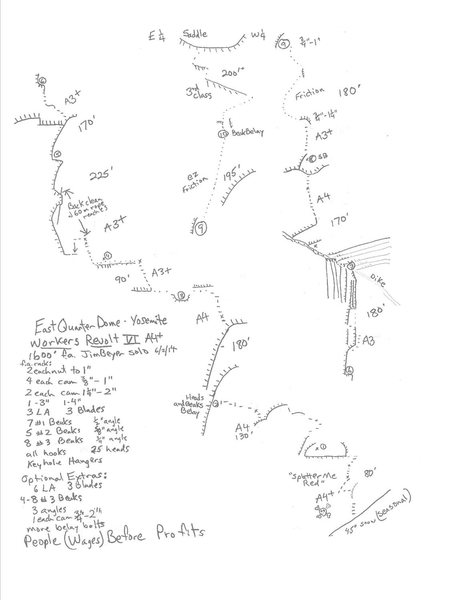 E ¼ Saddle W ¼
9
¾"-1"
200'
3rd class
Friction
180'
6
A3+
170'
¾"-1¼"
A3+
10 Beak Belay
8
5
225'
195'
EZ Friction
A4
Back clean
60m rope reaches
170'
9
A3+
4
90'
A3+
7
Dike
3
180'
A4
A3
East Quarter Dome - Yosemite
Workers Revolt VI A4+
1600' f.a. Jim Beyer Solo 6/2/14
180'
6
f.a. rack:
2 each nut to 1"
4 each cam ⅜"-1"
2 each cam 1¼"-2"
1-3" 1-4"
3 LA 3 Blades
7 #1 Beaks ½" angle
5 #2 Beaks ⅝" angle
8 #3 Beaks ¾" angle
all hooks 25 heads
Keyhole Hangers
Heads and Beaks Belay
2
A4
130'
1
Optional Extras:
6 LA 3 Blades
4-8 #3 Beaks
3 angles ¾
1 each cam ¾"-2¼
more belay bolts
"Splatter Me Red"
80'
A4+
45° snow (seasonal)
People (Wages) Before Profits